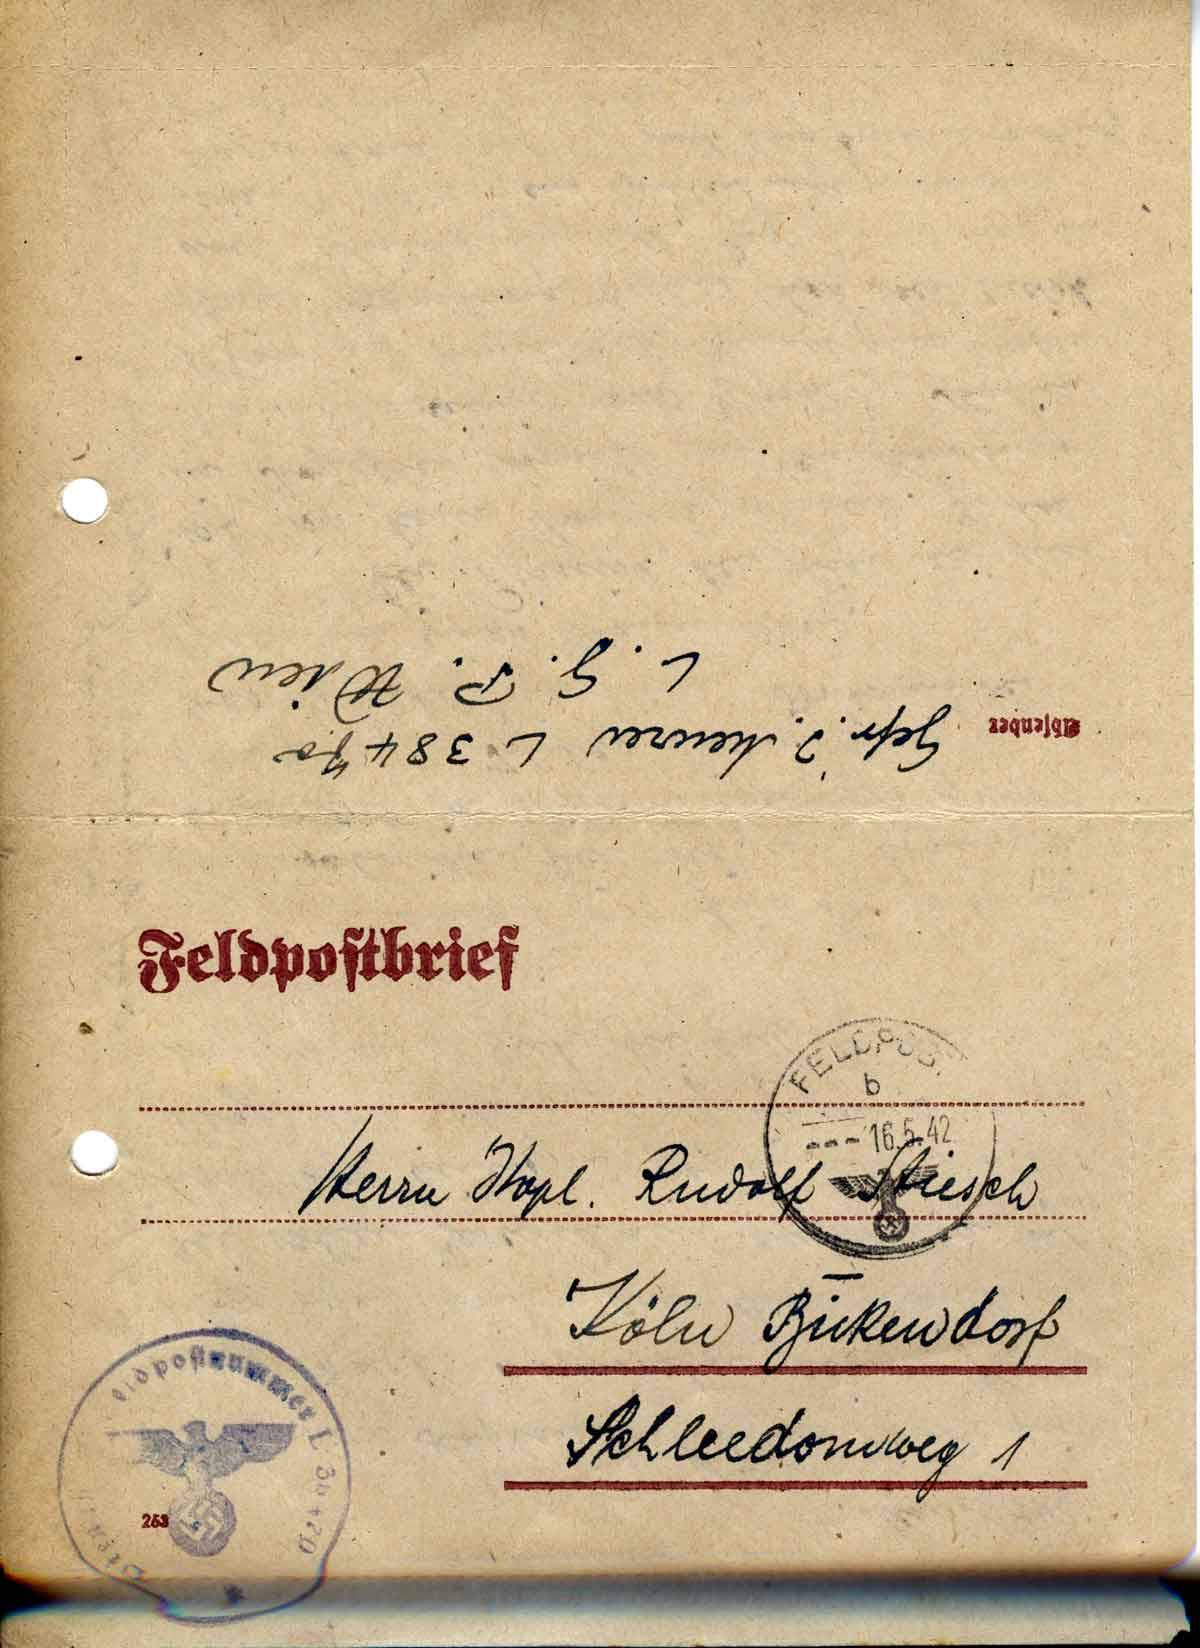 Absender Gefr. J. Meurer L 38470
L. G. P. Wien
Feldpostbrief
FELDPOST
b
16.5.42
Herrn Kapl. Rudolf Stiesch
Köln Bickendorf
Schleedornweg 1
Feldpostnummer L 38470
253